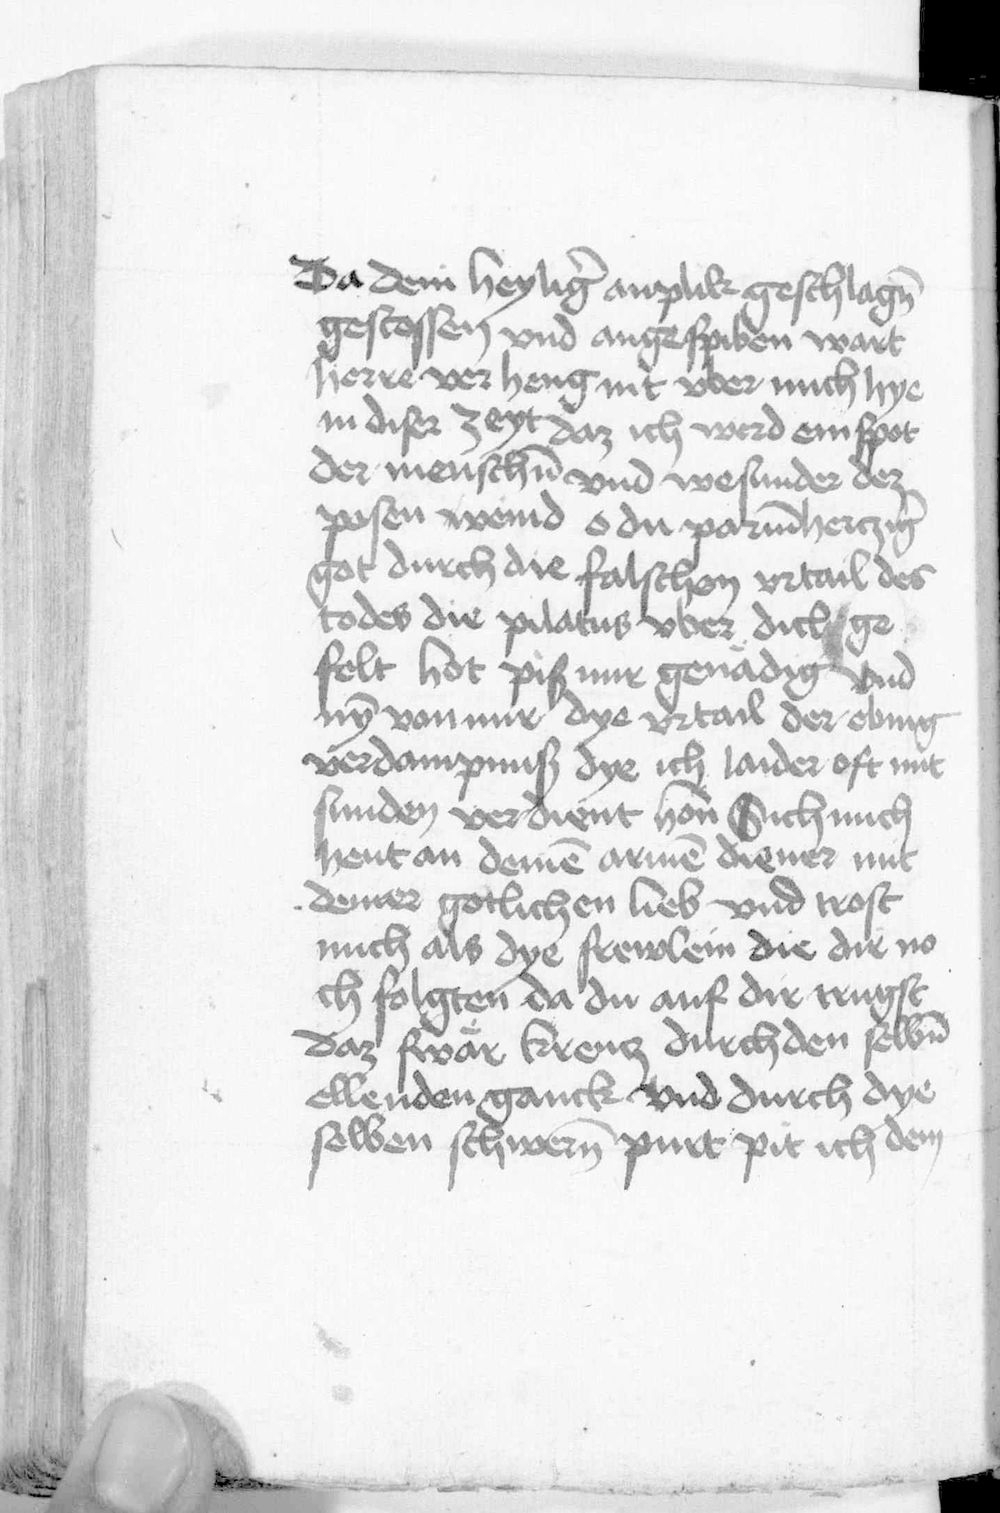 Da dein heylig̃ anplik geschlagñ
gestossen vnd angespiben wart
herre ver heng nit vber mich hye
in diser zeyt daz ich werd ein spot
der menschñ vnd wesunder der
posen weind o du parm̃hertzig̃
got durch die falschen vrtail des
todes die pilatus vber dich ge
felt hot piß mir genädig vnd
nȳ von mir dye vrtail der ebing
verdampnuß dye ich laider oft mit
sunden verdient hon̄ Sich mich
heut an deinē armē diener mit
deiner gotlichen lieb vnd trost
mich als dye frewlein die dir no
ch folgten da du auf dir trugst
daz swär kreutz durch den selbn̄
ellenden ganck vnd durch dye
selben schwern̄ purt pit ich dein